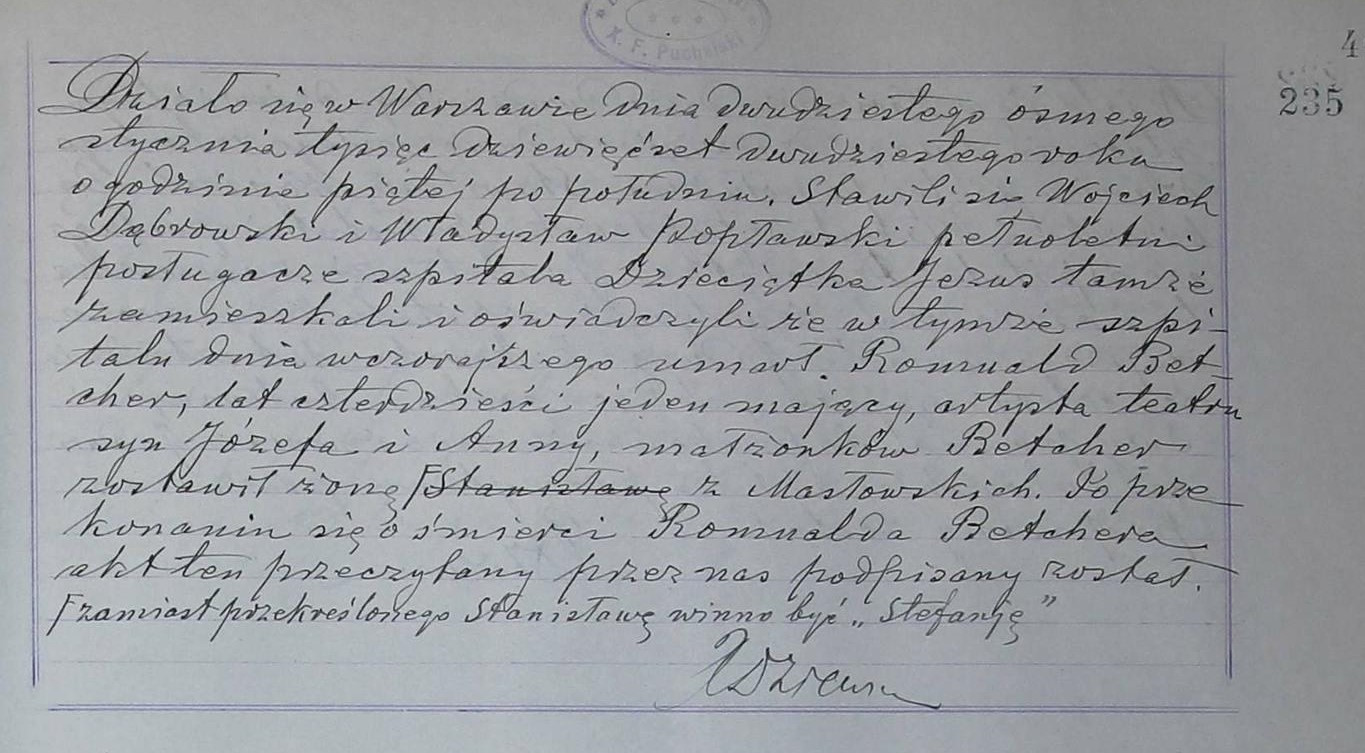 X. F. Puchalski
4
235
Działo się w Warszawie dnia dwudziestego ósmego
stycznia tysiąc dziewięćset dwudziestego roku
o godzinie piątej po południu. Stawili się Wojciech
Dąbrowski i Władysław Popławski pełnoletni
posługacze szpitala Dzieciątka Jezus tamże
zamieszkali i oświadczyli że w tymże szpi-
talu dnia wczorajszego umarł. Romuald Bet-
cher, lat czterdzieści jeden mający, artysta teatru
syn Józefa i Anny, małżonków Betcher
zostawił żonę Stanisławę z Masłowskich. Po prze
konaniu się o śmierci Romualda Betchera
akt ten przeczytany przez nas podpisany został.
zamiast przekreślonego Stanisławę winno być „Stefanję”